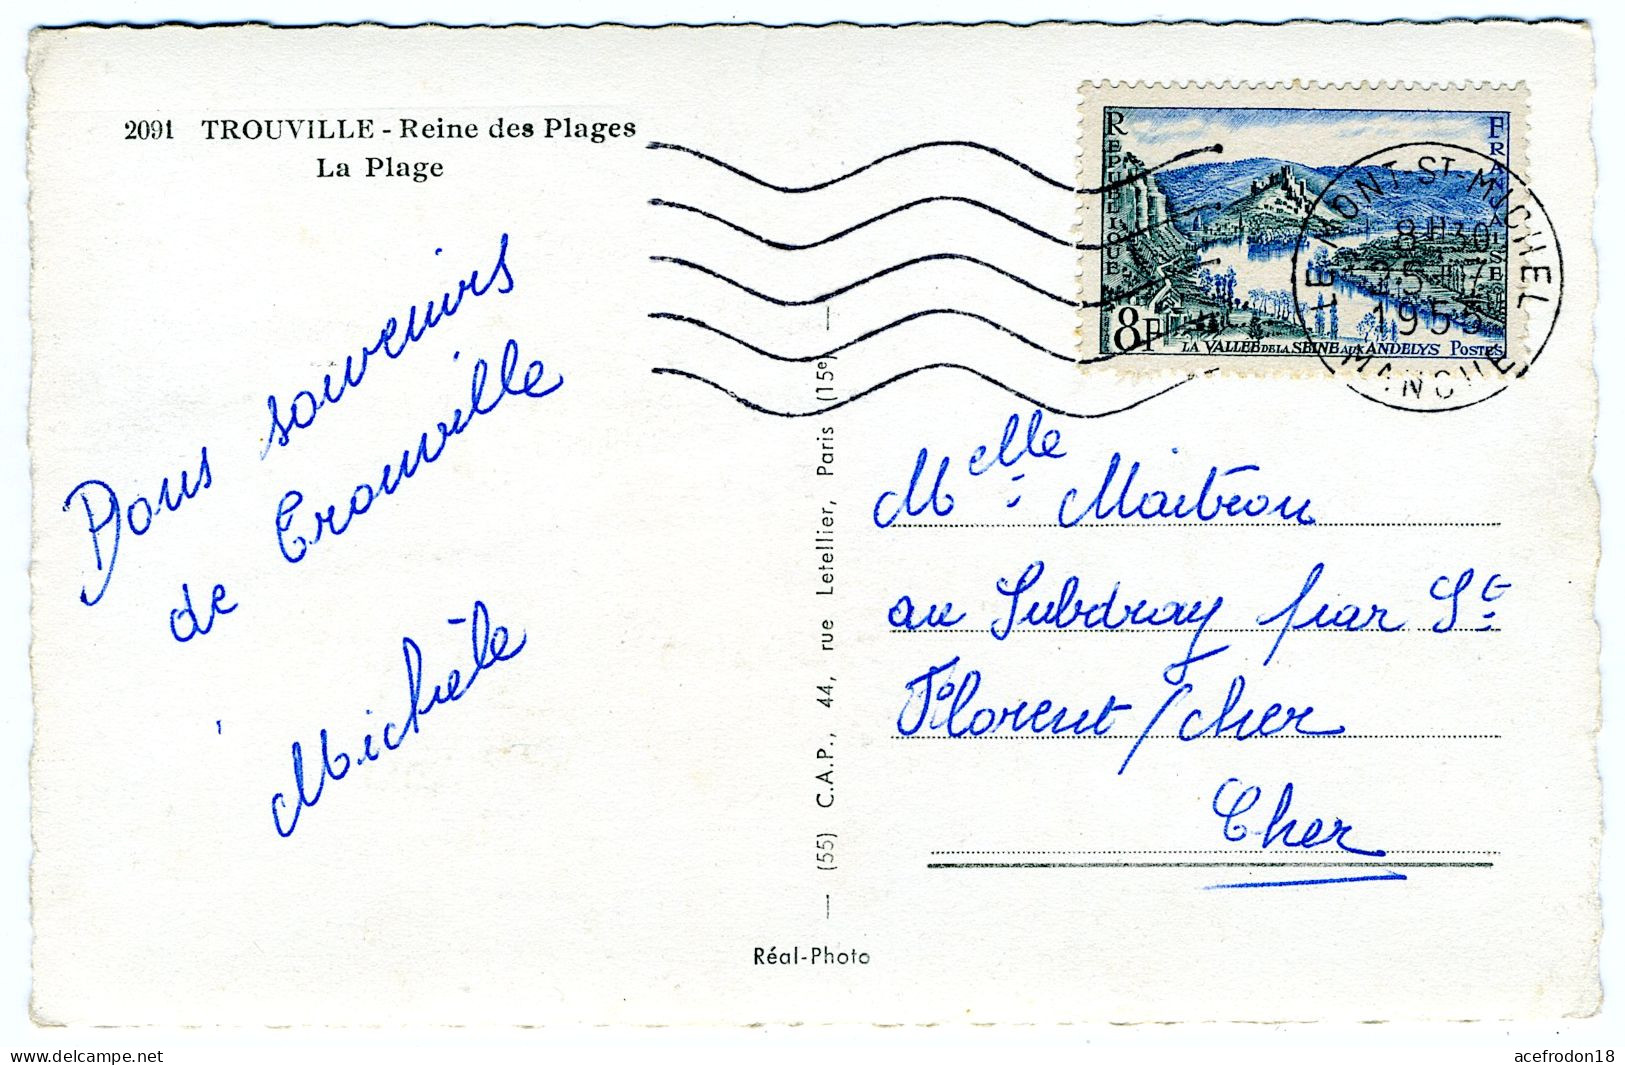 2091 TROUVILLE - Reine des Plages
La Plage
Bons souvenirs
de Trouville
Michèle
REPUBLIQUE
FRANÇAISE
8F
LA VALLEE DE LA SEINE AUX ANDELYS POSTES
LE MONT-ST MICHEL
8H30
25-7
1955
MANCHE
Melle Maitron
au Subdray par St
Florent/cher
Cher
(55) C.A.P., 44, rue Letellier, Paris (15e)
Réal-Photo
delcampe.net
acefrodon18